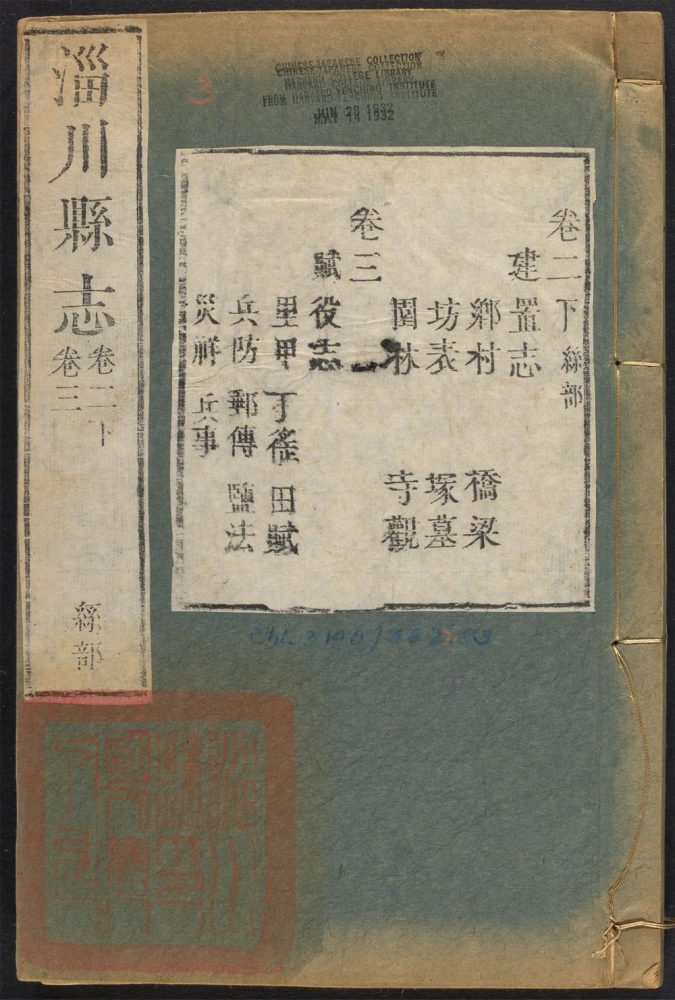 淄川縣志 卷二下
卷三
絲部
3
CHINESE-JAPANESE COLLECTION
HARVARD COLLEGE LIBRARY
FROM HARVARD-YENCHING INSTITUTE
1932
卷二下 絲部
建置志
鄉村 橋梁
坊表 塚墓
園林 寺觀
卷三
賦役志
里甲 丁徭 田賦
兵防 郵傳 鹽法
災祥 兵事